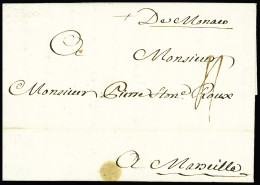 De Monaco
A Monsieur
Monsieur Pierre Honé Roux
A Marseille